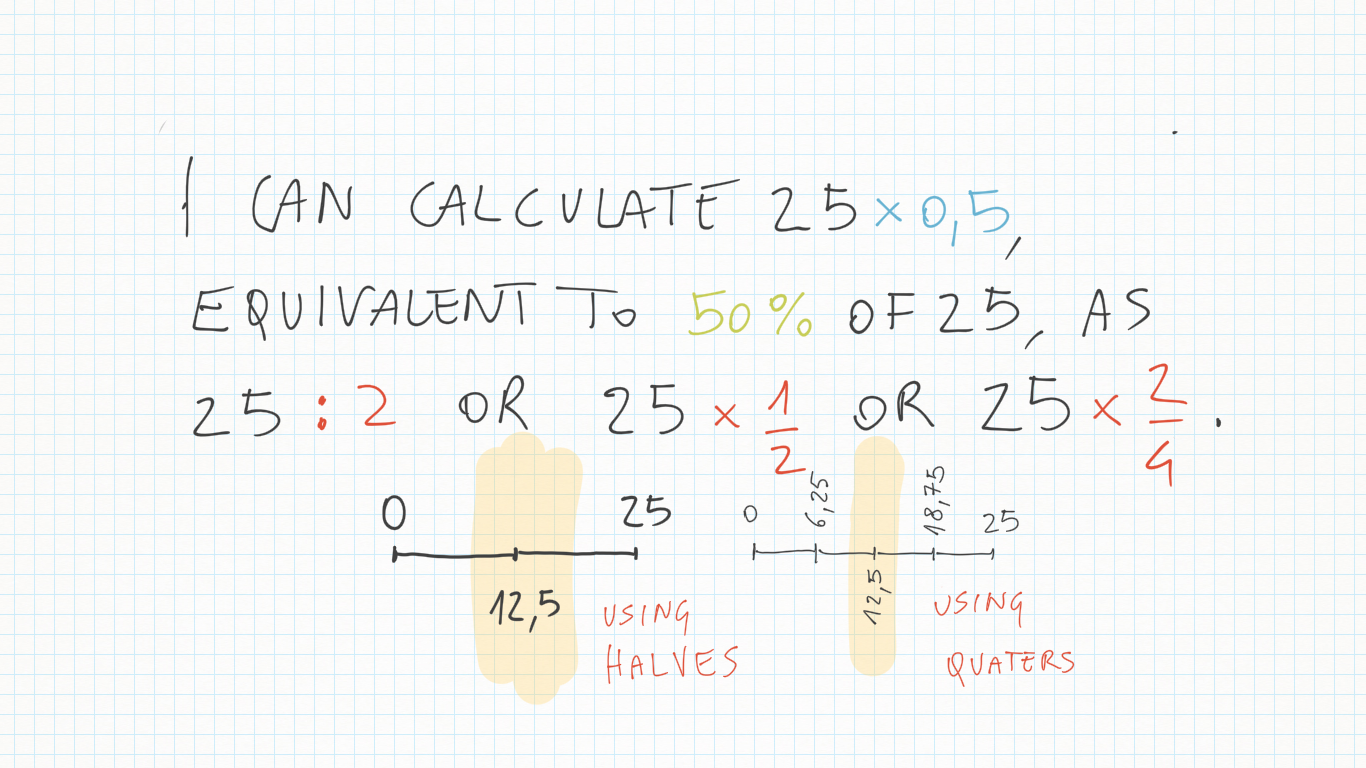 I CAN CALCULATE 25 × 0,5,
EQUIVALENT TO 50% OF 25, AS
25 : 2 OR 25 × 1/2 OR 25 × 2/4 .
0 25
12,5
USING
HALVES
0 6,25 18,75 25
12,5
USING
QUATERS